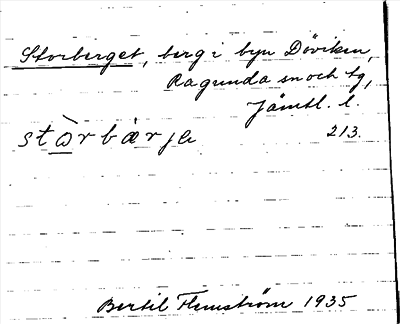 Storberget, berg i byn Döviken,
Ragunda sn och tg,
Jämtl. l.
213.
stɷ̀rbæ̀rje
Bertil Flemström 1935